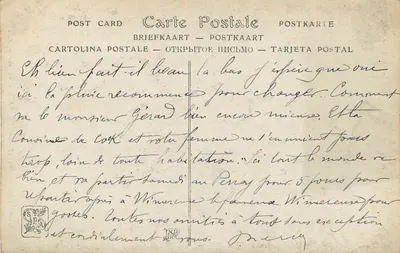 POST CARD Carte Postale POSTKARTE
BRIEFKAART — POSTKAART
CARTOLINA POSTALE — ОТКРЫТОЕ ПИСЬМО — TARJETA POSTAL
Eh bien fait-il beau la bas J'espère que oui
ici la pluie recommence pour changer. Comment
va le monsieur Gérard bien encore mieux. Et la
Cousine de et votre femme ne s'ennuient pas
trop, loin de toute habitation. Ici tout le monde va
bien et va partir samedi au Perray pour 5 jours pour
repartir après à Wimereux Wimereux pour
Toutes nos amitiés à tous sans exception
et cordialement à vous.